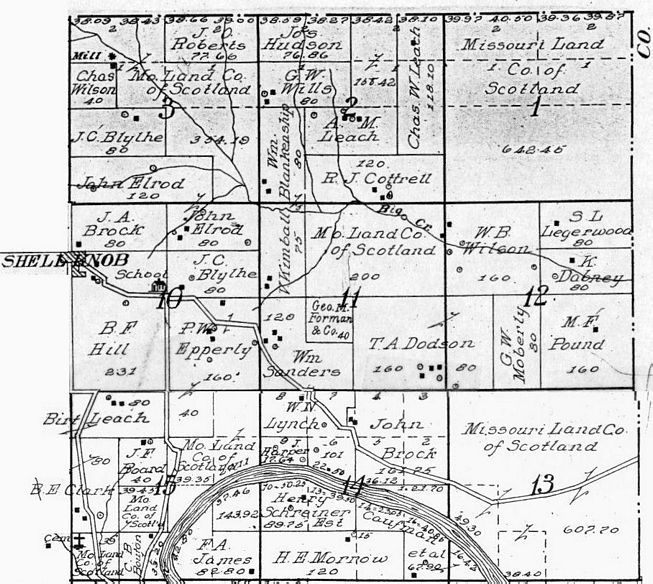 38.03 38.43 38.66 39.00 38.27 38.42 38.10 39.97 40.50 39.36 39.87
CO.
Mill
J. O.
Roberts
77.66
Jos
Hudson
76.86
Missouri Land
Co. of
Scotland
642.45
1
Chas
Wilson
40
Mo. Land Co.
of Scotland
3
354.19
G.W.
Wills
80
158.42
Chas. W. Leach
118.10
2
A. M.
Leach
J.C. Blythe
80
Wm.
Blankenship
80
John Elrod
120
120
R. J. Cottrell
Big Cr.
J.A.
Brock
80
John
Elrod
80
W. Kimball
75
Mo. Land Co
of Scotland
200
W.B.
Wilson
160
S.L
Legerwood
80
SHELL KNOB
School
J.C.
Blythe
80
K.
Dabney
80
10
11
12
B.F.
Hill
231
P.W.
Epperly
160
120
Geo. M.
Forman
& Co. 40
Wm
Sanders
T.A. Dodson
160 80
G.W.
Moberly
80
M.F.
Pound
160
80
Birt Leach
40
W.N
Lynch
John
Brock
Missouri Land Co.
of Scotland
80
J.F.
Board
40
Mo. Land
Co. of
Scotland
39.35
J.
Harper
101
B.E. Clark
39.45
15
Mo.
Land
Co. of
Scot'l'd
37.46
143.92
Henry
Schreiner
89.75 Est
14
13
607.70
Cem
Mo. Land
Co. of
Scotland
F.A.
James
82.80
H.E. Morrow
120
et al
38.40